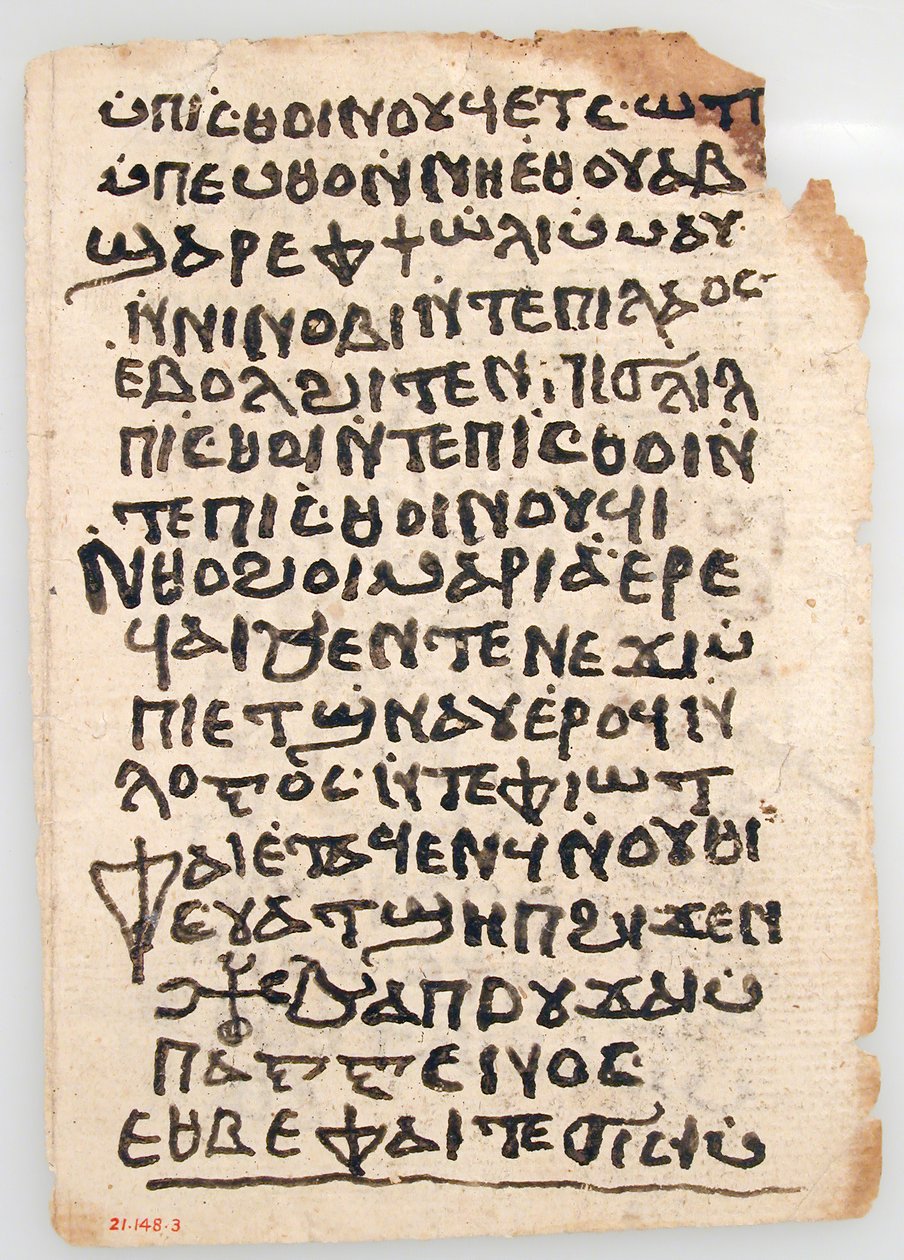 ⲙ̇ⲡⲓⲥⲑⲟⲓⲛⲟⲩϥⲉⲧⲥⲱⲧⲡ
ⲙ̇ⲡⲉⲙⲑⲟⲛ̇ⲛⲏⲉ̇ⲑⲟⲩⲁⲃ
ϣⲁⲣⲉⲫϯⲱⲗⲓⲙ̇ⲙⲁⲩ
ⲛ̇ⲛⲓⲛⲟⲃⲓⲛ̇ⲧⲉⲡⲓⲗⲁⲟⲥ
ⲉⲃⲟⲗϩⲓⲧⲉⲛⲡⲓϭⲗⲓⲗ
ⲡⲓⲥⲑⲟⲓⲛ̇ⲧⲉⲡⲓⲥⲑⲟⲓⲛ
ⲧⲉⲡⲓⲥⲑⲟⲓⲛⲟⲩϥⲓ
ⲛ̇ⲑⲟϩⲟⲓⲙⲁⲣⲓⲁ̇ⲉⲣⲉ
ϥⲁⲓϧⲉⲛⲧⲉⲛⲉϫⲓⲙ̇
ⲡⲓⲉⲧϣ̇ⲛⲁⲩⲉ̇ⲣⲟϥⲛ̇
ⲗⲟⲅⲟⲥⲛ̇ⲧⲉⲫⲓⲱⲧ
ⲫⲁⲓⲉ̇ⲧⲁϥⲉⲛϥⲛ̇ⲟⲩⲑⲓ
ⲉⲩⲁⲧϣⲏⲡϩⲓϫⲉⲛ
ⲁⲡⲟⲩϫⲁⲓⲙ̇
ⲡⲁⲅⲅⲉⲛⲟⲥ
ⲉⲑⲃⲉⲫⲁⲓⲧⲉϭⲓⲥⲓⲙ̇
21.148.3